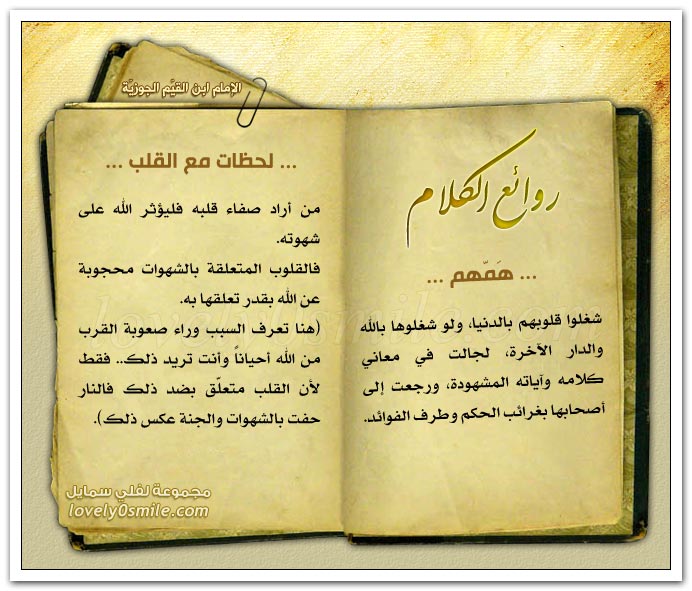 الإمام ابن القيَّم الجوزيَّة
روائع الكلام
... هَمّهم ...
شغلوا قلوبهم بالدنيا، ولو شغلوها بالله
والدار الآخرة، لجالت في معاني
كلامه وآياته المشهودة، ورجعت إلى
أصحابها بغرائب الحكم وطرف الفوائد.
... لحظات مع القلب ...
من أراد صفاء قلبه فليؤثر الله على
شهوته.
فالقلوب المتعلقة بالشهوات محجوبة
عن الله بقدر تعلقها به.
(هنا تعرف السبب وراء صعوبة القرب
من الله أحياناً وأنت تريد ذلك.. فقط
لأن القلب متعلّق بضد ذلك فالنار
حفت بالشهوات والجنة عكس ذلك).
مجموعة لفلي سمايل
lovely0smile.com
lovely0smile.com